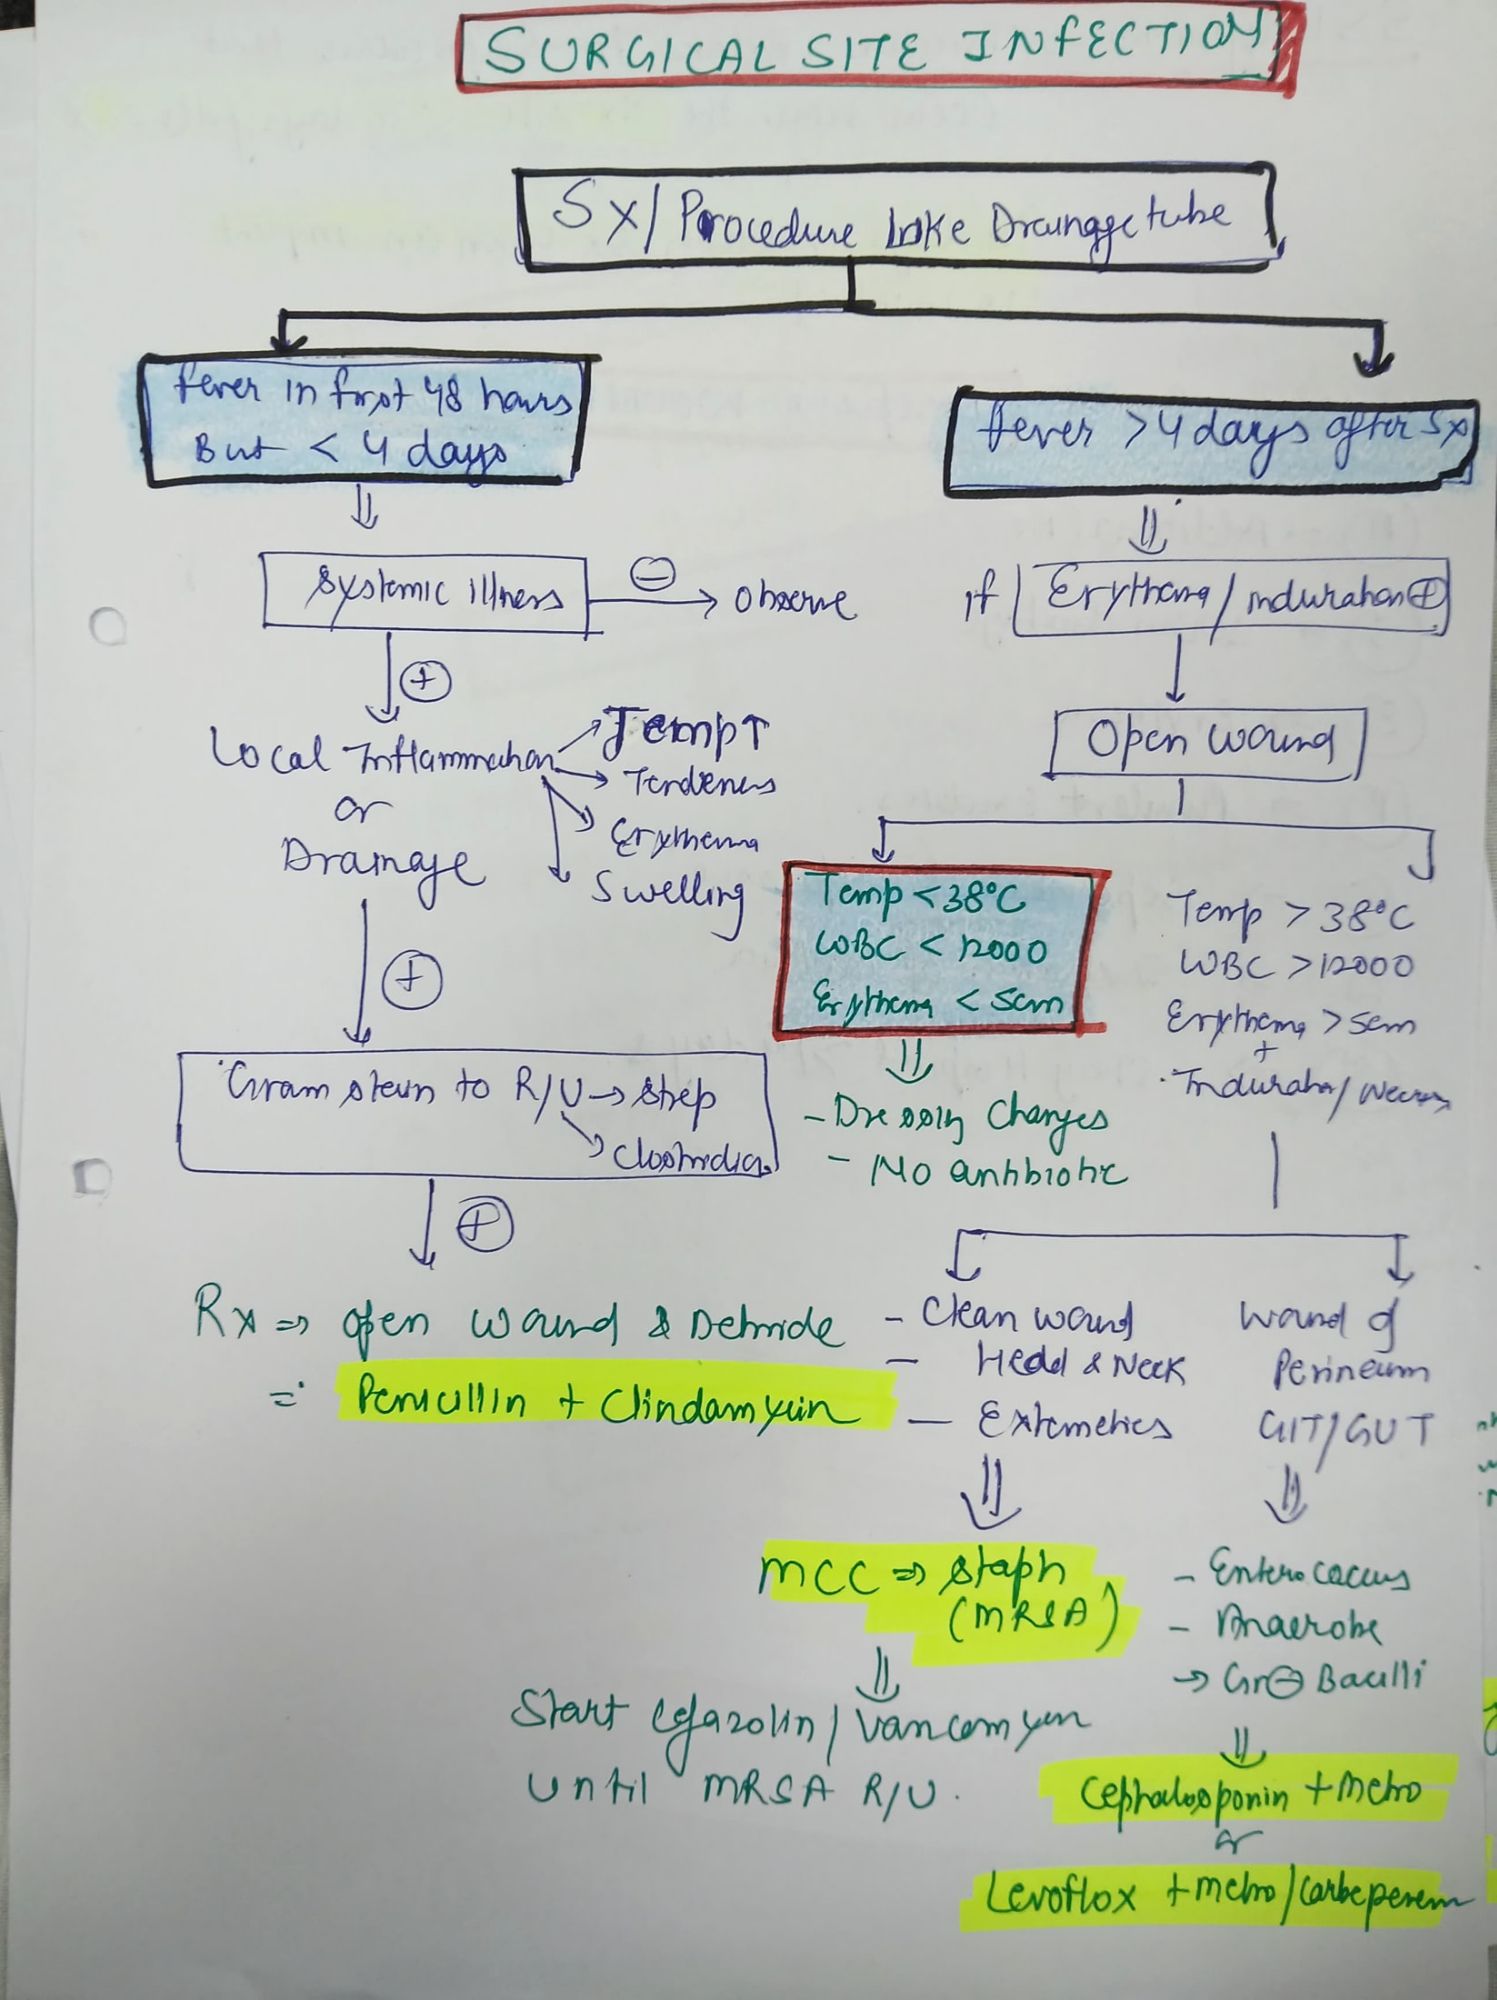 SURGICAL SITE INFECTION
Sx/ Procedure like Drainage tube
fever in first 48 hours
But < 4 days
fever > 4 days after Sx
Systemic illness
⊖
Observe
if
Erythema / induration ⊕
⊕
Open wound
Local Inflammation
or
Drainage
Temp↑
Tendeness
Erythema
Swelling
Temp < 38°C
WBC < 12000
Erythema < 5cm
Temp > 38°C
WBC > 12000
Erythema > 5cm
+
Induration/ Necrosis
⊕
Gram stain to R/U → Strep
Clostridia
- Dressing Changes
- No antibiotic
⊕
Rx ⇒ open wound & Debride
= Penicillin + Clindamycin
- Clean wound
- Head & Neck
- Extremeties
wound of
Perineum
GIT/GUT
MCC ⇒ Staph
(MRSA)
- Enterococcus
- Anaerobe
→ Gr⊖ Bacilli
Start Cefazolin / Vancomycin
Until MRSA R/U.
Cephalosporin + Metro
or
Levoflox + metro / Carbepenem